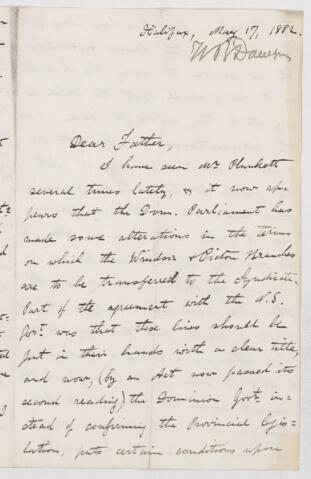 Halifax, May 17, 1882.
Dear Father,
I have seen Mr Plunkett
several times lately, & it now ap-
pears that the Dom. Parliament has
made some alterations in the terms
on which the Windsor & Pictou Branches
are to be transferred to the Syndicate.
Part of the agreement with the N.S.
Govt. was that these lines should be
put in their hands with a clear title,
and now, (by an Act now passed its
second reading) the Dominion Govt. in-
stead of confirming the Provincial legis-
lation, puts certain conditions upon